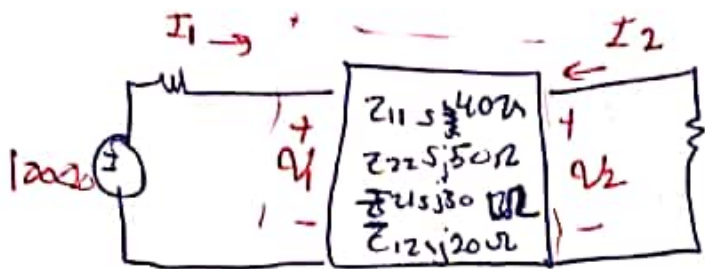 I1 →
← I2
100∠0
+
V1
-
Z11 = j40Ω
Z22 = j50Ω
Z21 = j30 Ω
Z12 = j20Ω
+
V2
-